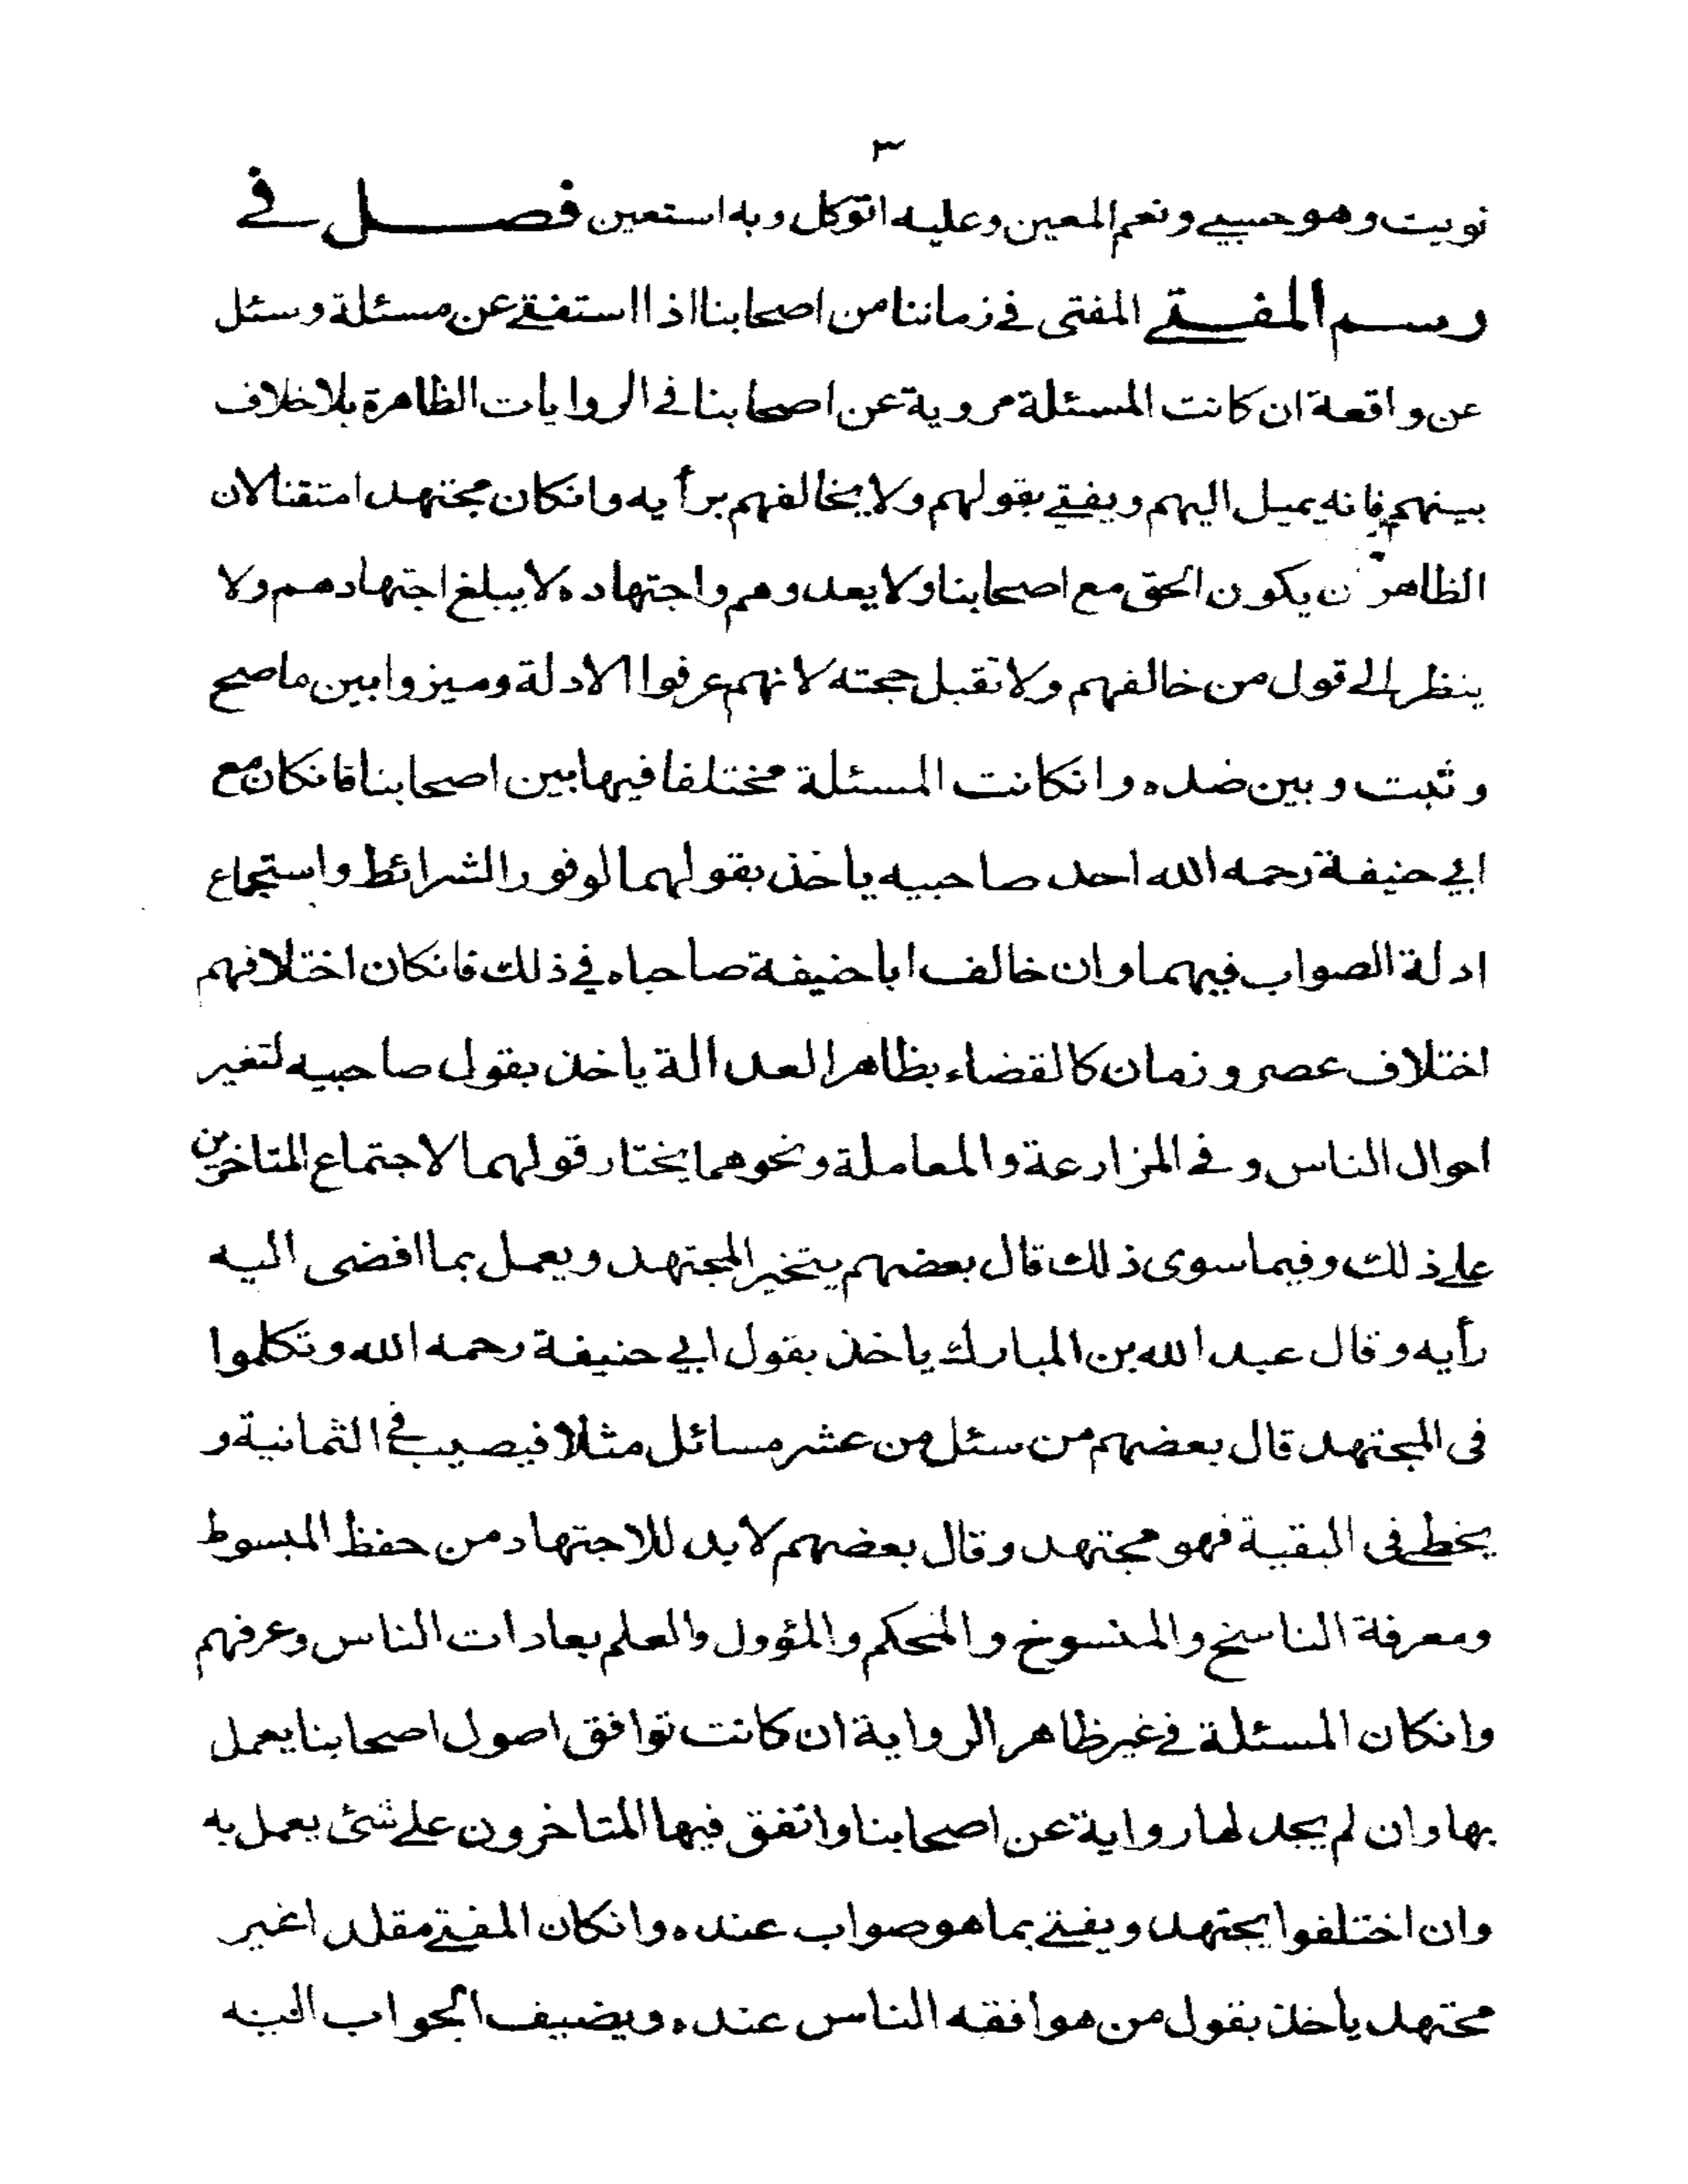 ٣
نويت وهو حسبي ونعم المعين وعليه اتوكل وبه استعين فصل في
رسم المفتي المفتى في زماننا من اصحابنا اذا استفتي عن مسئلة وسئل
عن واقعة ان كانت المسئلة مروية عن اصحابنا في الروايات الظاهرة بلا خلاف
بينهم فانه يميل اليهم ويفتي بقولهم ولا يخالفهم برأيه وانكان مجتهدا متقنا لان
الظاهر ن يكون الحق مع اصحابنا ولا يعدوهم واجتهاده لا يبلغ اجتهادهم ولا
ينظر الى قول من خالفهم ولا تقبل حجته لانهم عرفوا الادلة وميزوا بين ما صح
وثبت وبين ضده وانكانت المسئلة مختلفا فيها بين اصحابنا فانكان مع
ابي حنيفة رحمه الله احد صاحبيه ياخذ بقولهما لوفور الشرائط واستجماع
ادلة الصواب فيهما وان خالف ابا حنيفة صاحباه في ذلك فانكان اختلافهم
اختلاف عصر وزمان كالقضاء بظاهر العدالة ياخذ بقول صاحبيه لتغير
احوال الناس وفي المزارعة والمعاملة ونحوهما يختار قولهما لاجتماع المتاخرين
على ذلك وفيما سوى ذلك قال بعضهم يتخير المجتهد ويعمل بما افضى اليه
رأيه وقال عبد الله بن المبارك ياخذ بقول ابي حنيفة رحمه الله وتكلموا
فى المجتهد قال بعضهم من سئل من عشر مسائل مثلا فيصيب في الثمانية و
يخطي فى البقية فهو مجتهد وقال بعضهم لا بد للاجتهاد من حفظ المبسوط
ومعرفة الناسخ والمنسوخ والمحكم والمؤول والعلم بعادات الناس وعرفهم
وانكان المسئلة في غير ظاهر الرواية ان كانت توافق اصول اصحابنا يعمل
بها وان لم يجد لها رواية عن اصحابنا واتفق فيها المتاخرون على شئ يعمل به
وان اختلفوا يجتهد ويفتي بما هو صواب عنده وانكان المفتي مقلدا غير
مجتهد ياخذ بقول من هو افقه الناس عنده ويضيف الجواب اليه